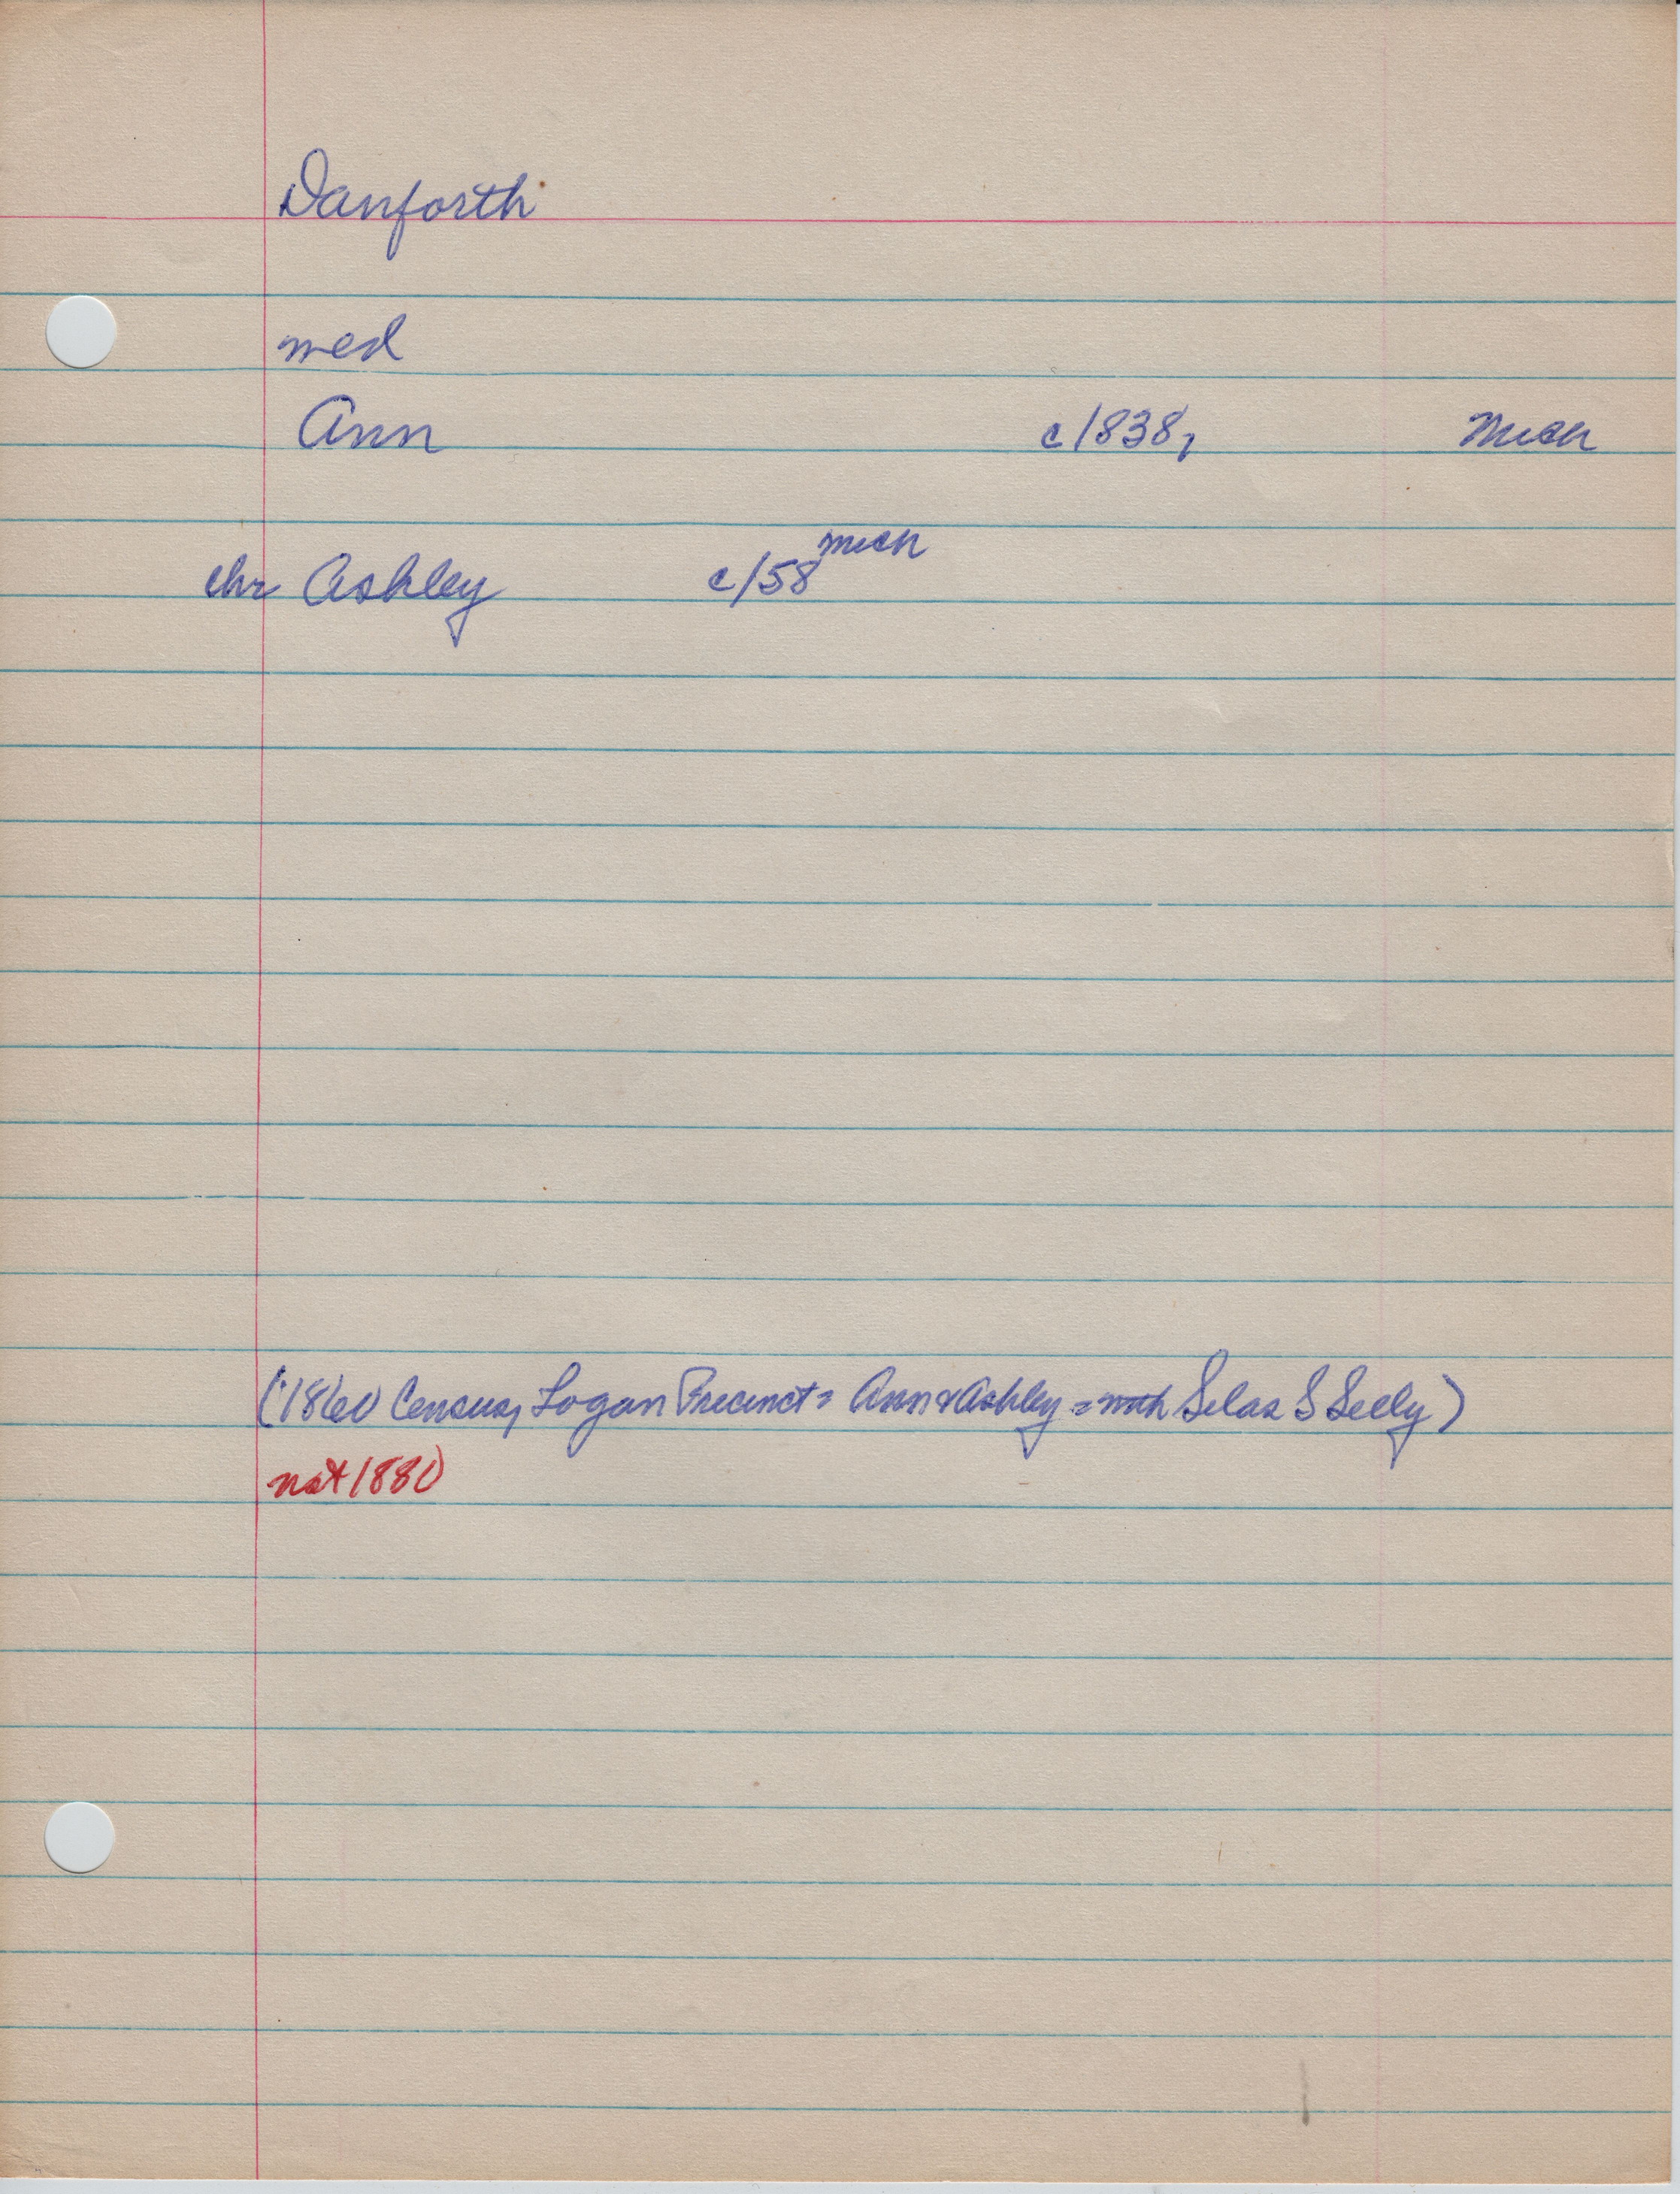 Danforth
med
Ann c/838, Mich
chr Ashley c/58 mich
(1860 Census, Logan Precinct = Ann & Ashley = with Silas S Seely)
not 1880